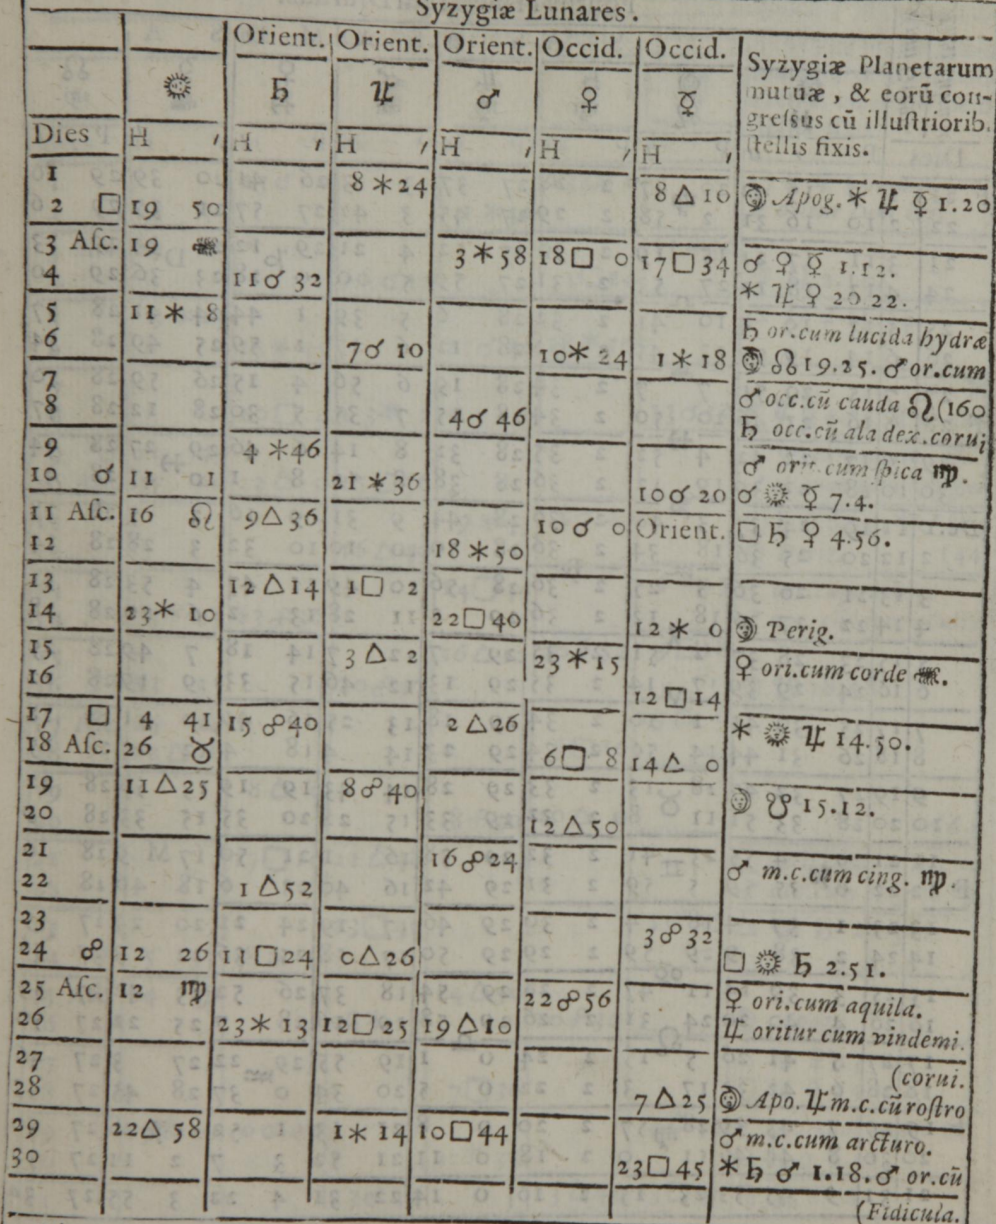 Syzygiæ Lunares.
Orient. Orient. Orient. Occid. Occid. Syzygiæ Planetarum
☉ ♄ ♃ ♂ ♀ ☿ mutuæ, & eorū con-
gressus cū illustriorib.
Dies H ′ H ′ H ′ H ′ H ′ H ′ stellis fixis.
1 8 ⚹ 24
2 □ 19 50 8 △ 10 ☽ Apog. ⚹ ♃ ☿ 1.20
3 Asc. 19 3 ⚹ 58 18 □ 0 17 □ 34 ♂ ♀ ☿ 1.12.
4 11 ☌ 32 ⚹ ♃ ♀ 20 22.
5 11 ⚹ 8 ♄ or.cum lucida hydræ
6 7 ☌ 10 10 ⚹ 24 1 ⚹ 18 ☽ ☊ 19.25. ♂ or.cum
7 ♂ occ.cū cauda ♌ (160
8 4 ☌ 46 ♄ occ.cū ala dex.corui
9 4 ⚹ 46
10 ☌ 11 01 21 ⚹ 36 10 ☌ 20 ♂ orit. cum spica ♍.
☌ ☉ ☿ 7.4.
11 Asc. 16 ♌ 9 △ 36 10 ☌ 0 Orient. □ ♄ ♀ 4.56.
12 18 ⚹ 50
13 12 △ 14 1 □ 2
14 23 ⚹ 10 22 □ 40 12 ⚹ 0 ☽ Perig.
15 3 △ 2 23 ⚹ 15 ♀ ori.cum corde
16 12 □ 14
17 □ 4 41 15 ☍ 40 2 △ 26 ⚹ ☉ ♃ 14.50.
18 Asc. 26 ♉ 6 □ 8 14 △ 0
19 11 △ 25 8 ☍ 40 ☽ ☋ 15.12.
20 12 △ 50
21 16 ☍ 24 ♂ m.c.cum cing. ♍.
22 1 △ 52
23 3 ☍ 32
24 ☍ 12 26 11 □ 24 0 △ 26 □ ☉ ♄ 2.51.
25 Asc. 12 ♍ 22 ☍ 56 ♀ ori.cum aquila.
26 23 ⚹ 13 12 □ 25 19 △ 10 ♃ oritur cum vindemi.
27 (corui.
28 7 △ 25 ☽ Apo. ♃ m.c.cū rostro
29 22 △ 58 1 ⚹ 14 10 □ 44 ♂ m.c.cum arcturo.
30 23 □ 45 ⚹ ♄ ♂ 1.18. ♂ or.cū
(Fidicula.